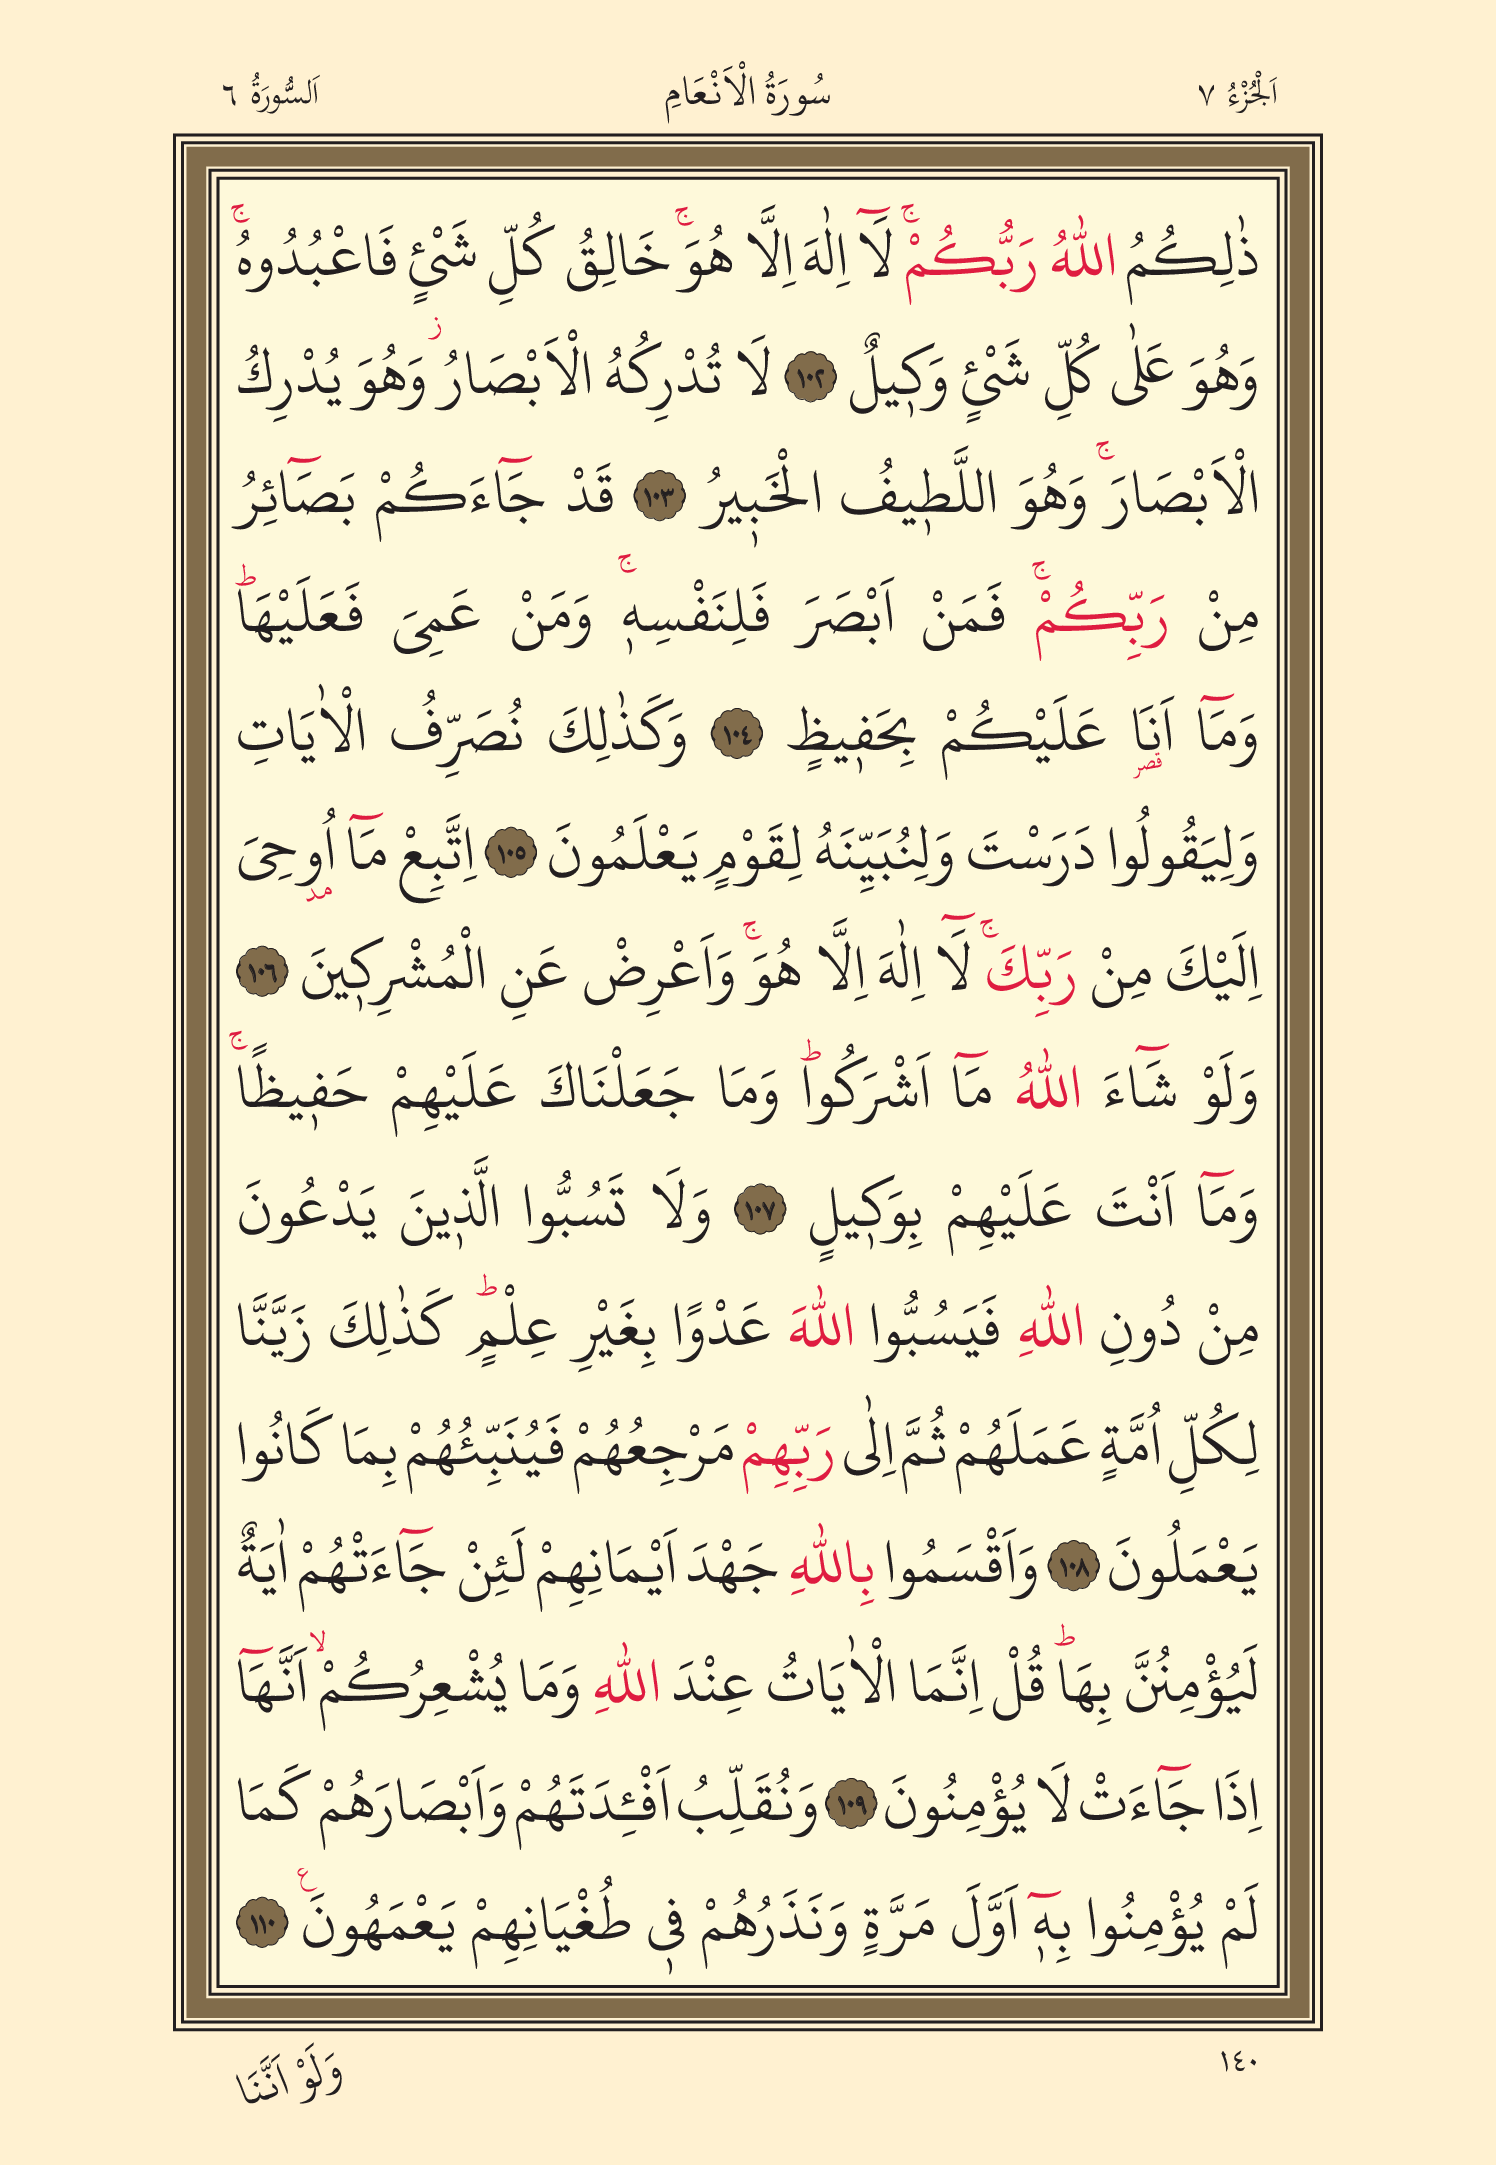 اَلْجُزْءُ ٧
سُورَةُ الْاَنْعَامِ
اَلسُّورَةُ ٦
ذٰلِكُمُ اللّٰهُ رَبُّكُمْۚ لَٓا اِلٰهَ اِلَّا هُوَۚ خَالِقُ كُلِّ شَيْءٍ فَاعْبُدُوهُۚ
وَهُوَ عَلٰى كُلِّ شَيْءٍ وَك۪يلٌ ﴿١٠٢﴾ لَا تُدْرِكُهُ الْاَبْصَارُۘ وَهُوَ يُدْرِكُ
الْاَبْصَارَۚ وَهُوَ اللَّط۪يفُ الْخَب۪يرُ ﴿١٠٣﴾ قَدْ جَٓاءَكُمْ بَصَٓائِرُ
مِنْ رَبِّكُمْۚ فَمَنْ اَبْصَرَ فَلِنَفْسِه۪ۚ وَمَنْ عَمِيَ فَعَلَيْهَاۜ
وَمَٓا اَنَا۬ عَلَيْكُمْ بِحَف۪يظٍ ﴿١٠٤﴾ وَكَذٰلِكَ نُصَرِّفُ الْاٰيَاتِ
وَلِيَقُولُوا دَرَسْتَ وَلِنُبَيِّنَهُ لِقَوْمٍ يَعْلَمُونَ ﴿١٠٥﴾ اِتَّبِعْ مَٓا اُو۫حِيَ
اِلَيْكَ مِنْ رَبِّكَۚ لَٓا اِلٰهَ اِلَّا هُوَۚ وَاَعْرِضْ عَنِ الْمُشْرِك۪ينَ ﴿١٠٦﴾
وَلَوْ شَٓاءَ اللّٰهُ مَٓا اَشْرَكُواۜ وَمَا جَعَلْنَاكَ عَلَيْهِمْ حَف۪يظًاۚ
وَمَٓا اَنْتَ عَلَيْهِمْ بِوَك۪يلٍ ﴿١٠٧﴾ وَلَا تَسُبُّوا الَّذ۪ينَ يَدْعُونَ
مِنْ دُونِ اللّٰهِ فَيَسُبُّوا اللّٰهَ عَدْوًا بِغَيْرِ عِلْمٍۜ كَذٰلِكَ زَيَّنَّا
لِكُلِّ اُمَّةٍ عَمَلَهُمْ ثُمَّ اِلٰى رَبِّهِمْ مَرْجِعُهُمْ فَيُنَبِّئُهُمْ بِمَا كَانُوا
يَعْمَلُونَ ﴿١٠٨﴾ وَاَقْسَمُوا بِاللّٰهِ جَهْدَ اَيْمَانِهِمْ لَئِنْ جَٓاءَتْهُمْ اٰيَةٌ
لَيُؤْمِنُنَّ بِهَاۜ قُلْ اِنَّمَا الْاٰيَاتُ عِنْدَ اللّٰهِ وَمَا يُشْعِرُكُمْۙ اَنَّهَٓا
اِذَا جَٓاءَتْ لَا يُؤْمِنُونَ ﴿١٠٩﴾ وَنُقَلِّبُ اَفْـِٔدَتَهُمْ وَاَبْصَارَهُمْ كَمَا
لَمْ يُؤْمِنُوا بِه۪ٓ اَوَّلَ مَرَّةٍ وَنَذَرُهُمْ ف۪ي طُغْيَانِهِمْ يَعْمَهُونَ۟ ﴿١١٠﴾
١٤٠
وَلَوْ اَنَّنَا